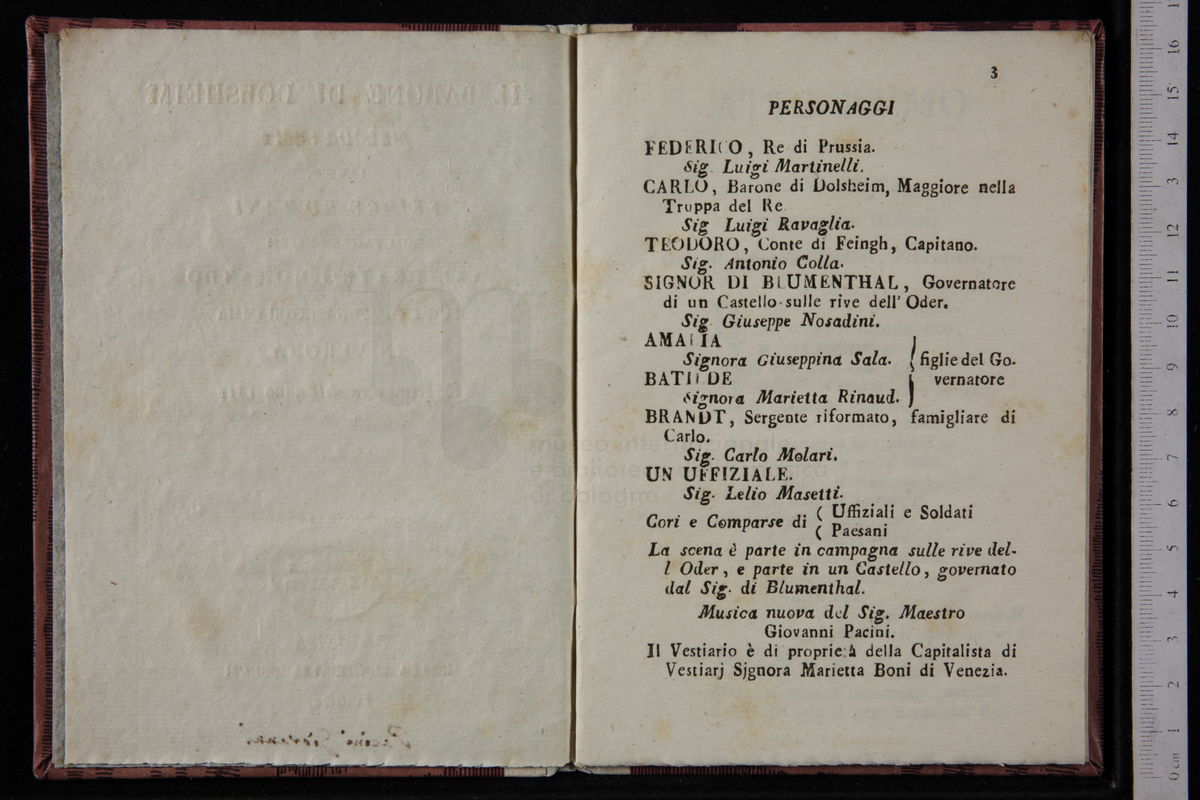 3
PERSONAGGI
FEDERICO, Re di Prussia.
Sig. Luigi Martinelli.
CARLO, Barone di Dolsheim, Maggiore nella
Truppa del Re
Sig Luigi Ravaglia.
TEODORO, Conte di Feingh, Capitano.
Sig. Antonio Colla.
SIGNOR DI BLUMENTHAL, Governatore
di un Castello sulle rive dell' Oder.
Sig. Giuseppe Nosadini.
AMALIA
Signora Giuseppina Sala. figlie del Go-
BATILDE vernatore
Signora Marietta Rinaud.
BRANDT, Sergente riformato, famigliare di
Carlo.
Sig. Carlo Molari.
UN UFFIZIALE.
Sig. Lelio Masetti.
Cori e Comparse di ( Uffiziali e Soldati
( Paesani
La scena è parte in campagna sulle rive del-
l Oder, e parte in un Castello, governato
dal Sig. di Blumenthal.
Musica nuova del Sig. Maestro
Giovanni Pacini.
Il Vestiario è di proprietà della Capitalista di
Vestiarj Sjgnora Marietta Boni di Venezia.
museo internazionale
e biblioteca della musica
di bologna
0 cm 1 2 3 4 5 6 7 8 9 10 11 12 13 14 15 16